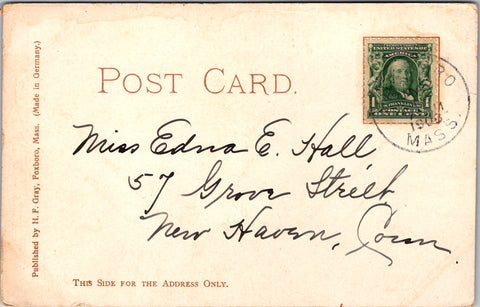 Published by H. F. Gray, Foxboro, Mass. (Made in Germany.)
POST CARD.
UNITED STATES OF AMERICA
FRANKLIN
1 1
POSTAGE
ONE CENT
MASS
Miss Edna E. Hall
57 Grove Street
New Haven, Conn.
THIS SIDE FOR THE ADDRESS ONLY.